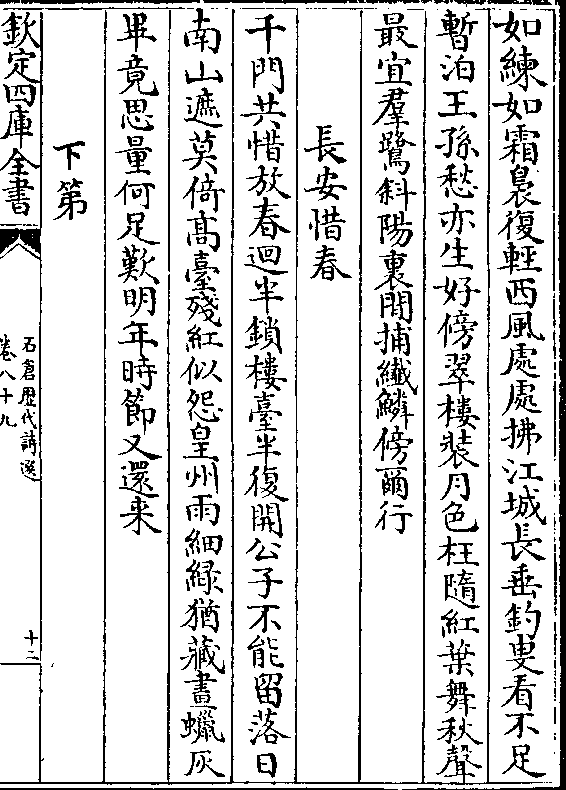 如練如霜裊復輕西風處處拂江城長垂釣叟看不足
暫泊王孫愁亦生好傍翠樓裝月色枉隨紅葉舞秋聲
最宜羣鷺斜陽裏閒捕纖鱗傍爾行
長安惜春
千門共惜放春迴半鎖樓臺半復開公子不能留落日
南山遮莫倚高臺殘紅似怨皇州雨細綠猶藏畫蠟灰
畢竟思量何足歎明年時節又還来
下第
欽定四庫全書
石倉歷代詩選
卷八十九
十二